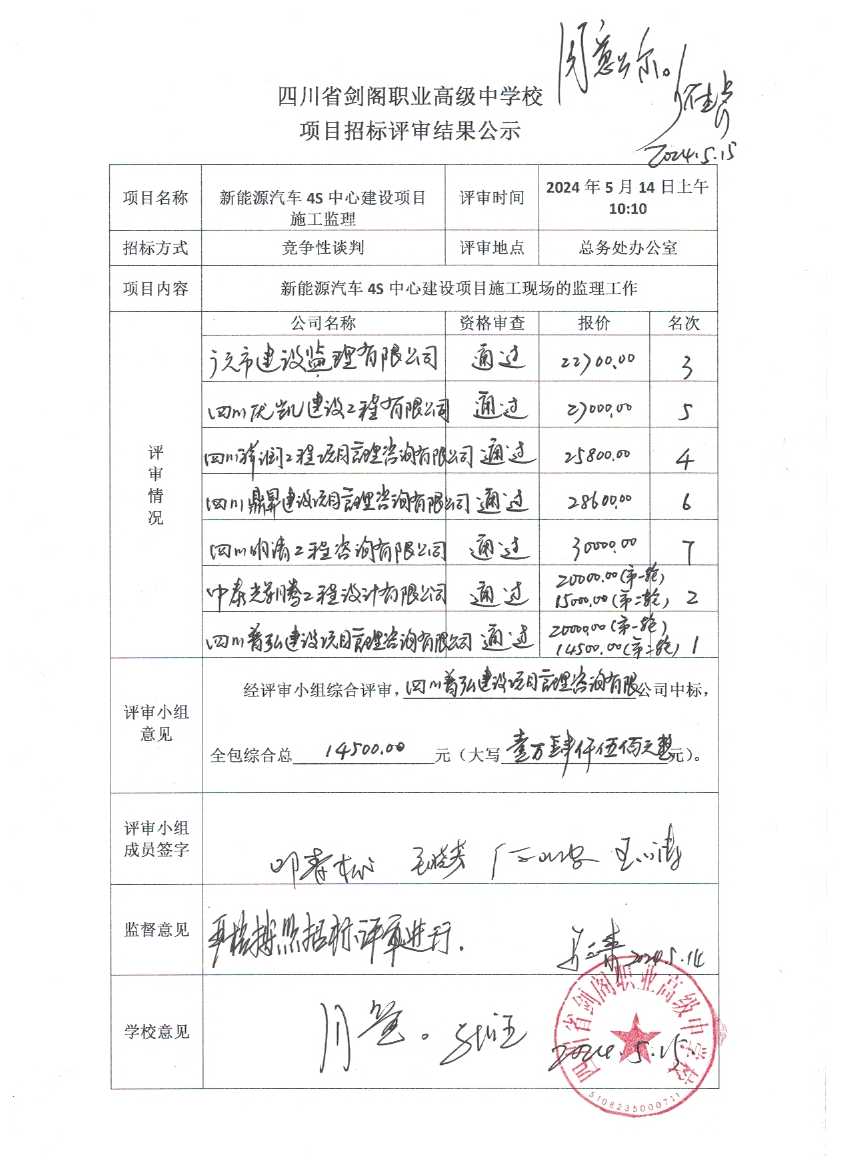 同意公示。
2024.5.15
四川省剑阁职业高级中学校
项目招标评审结果公示
项目名称 新能源汽车 4S 中心建设项目施工监理 评审时间 2024 年 5 月 14 日上午 10:10
招标方式 竞争性谈判 评审地点 总务处办公室
项目内容 新能源汽车 4S 中心建设项目施工现场的监理工作
评审情况
公司名称 资格审查 报价 名次
广元市建设监理有限公司 通过 22700.00 3
四川 凯建设工程有限公司 通过 27000.00 5
四川 润工程项目管理咨询有限公司 通过 25800.00 4
四川鼎昇建设项目管理咨询有限公司 通过 28600.00 6
四川明清工程咨询有限公司 通过 30000.00 7
中泰 腾工程设计有限公司 通过 20000.00(第一轮) 15000.00(第二轮) 2
四川普弘建设项目管理咨询有限公司 通过 20000.00(第一轮) 14500.00(第二轮) 1
评审小组意见
经评审小组综合评审,四川普弘建设项目管理咨询有限公司中标,
全包综合总 14500.00 元(大写 壹万肆仟伍佰元整元)。
评审小组成员签字
监督意见 招标评审进行.
2024.5.14
学校意见 同意。
2024.5.15.
四川省剑阁职业高级中学校